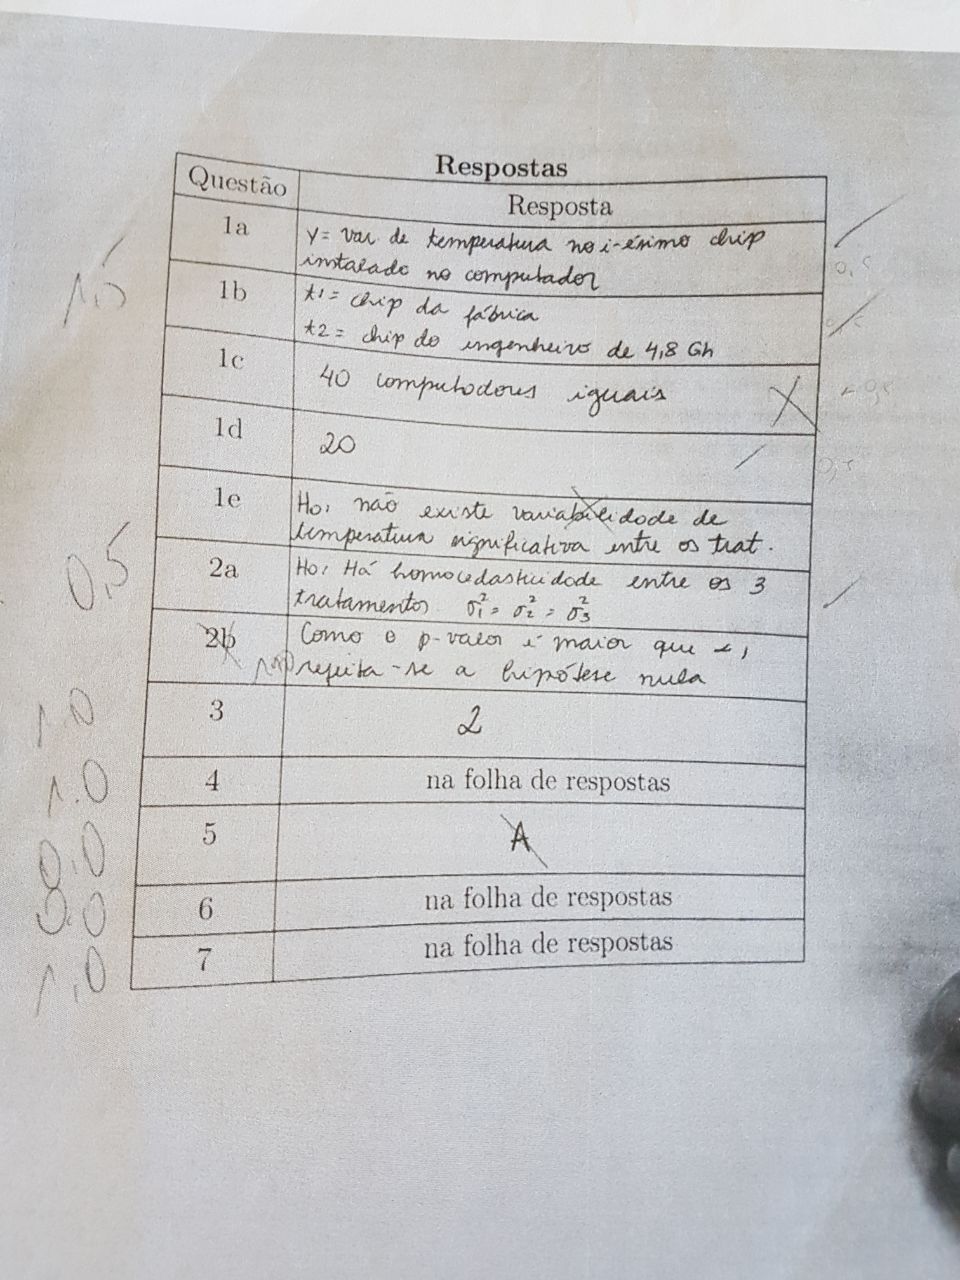 Respostas
Questão Resposta
1a Y = var de temperatura no i-ésimo chip
instalado no computador
0,5
1,5
1b t1 = chip da fábrica
t2 = chip do engenheiro de 4,8 Gh
1c 40 computadores iguais
1d 20
0,5
1e Ho: não existe variabilidade de
temperatura significativa entre os trat.
0,5
2a Ho: Há homocedasticidade entre os 3
tratamentos σ²1 = σ²2 = σ²3
2b Como o p-valor é maior que α,
rejeita-se a hipótese nula
1.0
3 2
1.0
4 na folha de respostas
0.0
5 A
0.0
6 na folha de respostas
1,0
7 na folha de respostas